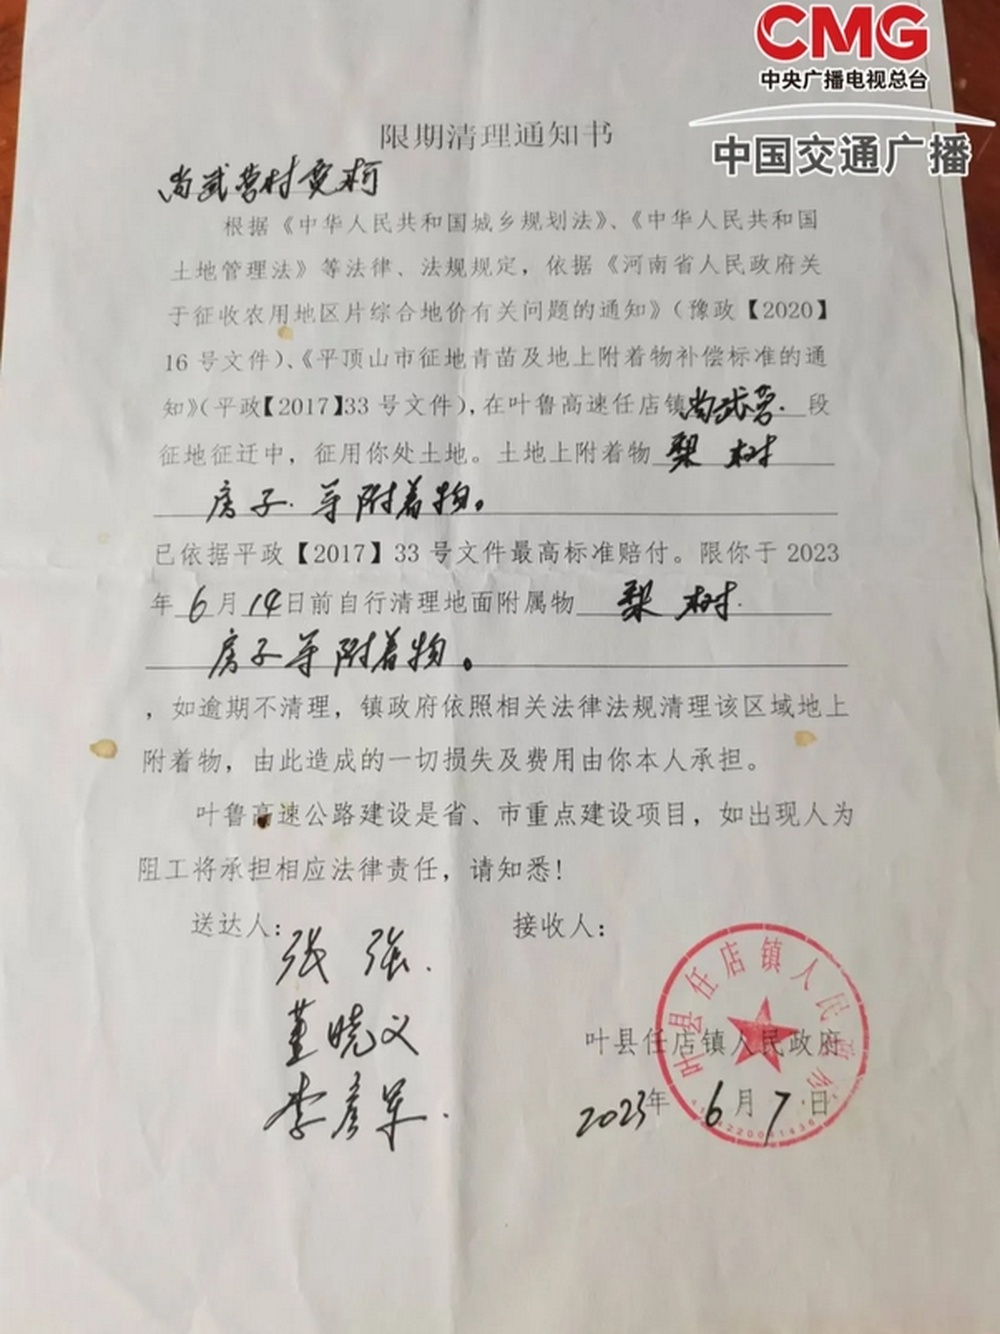 CMG
中央广播电视总台
中国交通广播
限期清理通知书
尚武营村贾柯
根据《中华人民共和国城乡规划法》、《中华人民共和国
土地管理法》等法律、法规规定，依据《河南省人民政府关
于征收农用地区片综合地价有关问题的通知》（豫政【2020】
16号文件）、《平顶山市征地青苗及地上附着物补偿标准的通
知》（平政【2017】33号文件），在叶鲁高速任店镇尚武营.段
征地征迁中，征用你处土地。土地上附着物 梨树
房子.等附着物。
已依据平政【2017】33号文件最高标准赔付。限你于2023
年6月14日前自行清理地面附属物 梨树.
房子等附着物。
，如逾期不清理，镇政府依照相关法律法规清理该区域地上
附着物，由此造成的一切损失及费用由你本人承担。
叶鲁高速公路建设是省、市重点建设项目，如出现人为
阻工将承担相应法律责任，请知悉！
送达人： 接收人：
张强.
董晓义
李彦军.
叶县任店镇人民政府
叶县任店镇人民政府
2023年6月7日